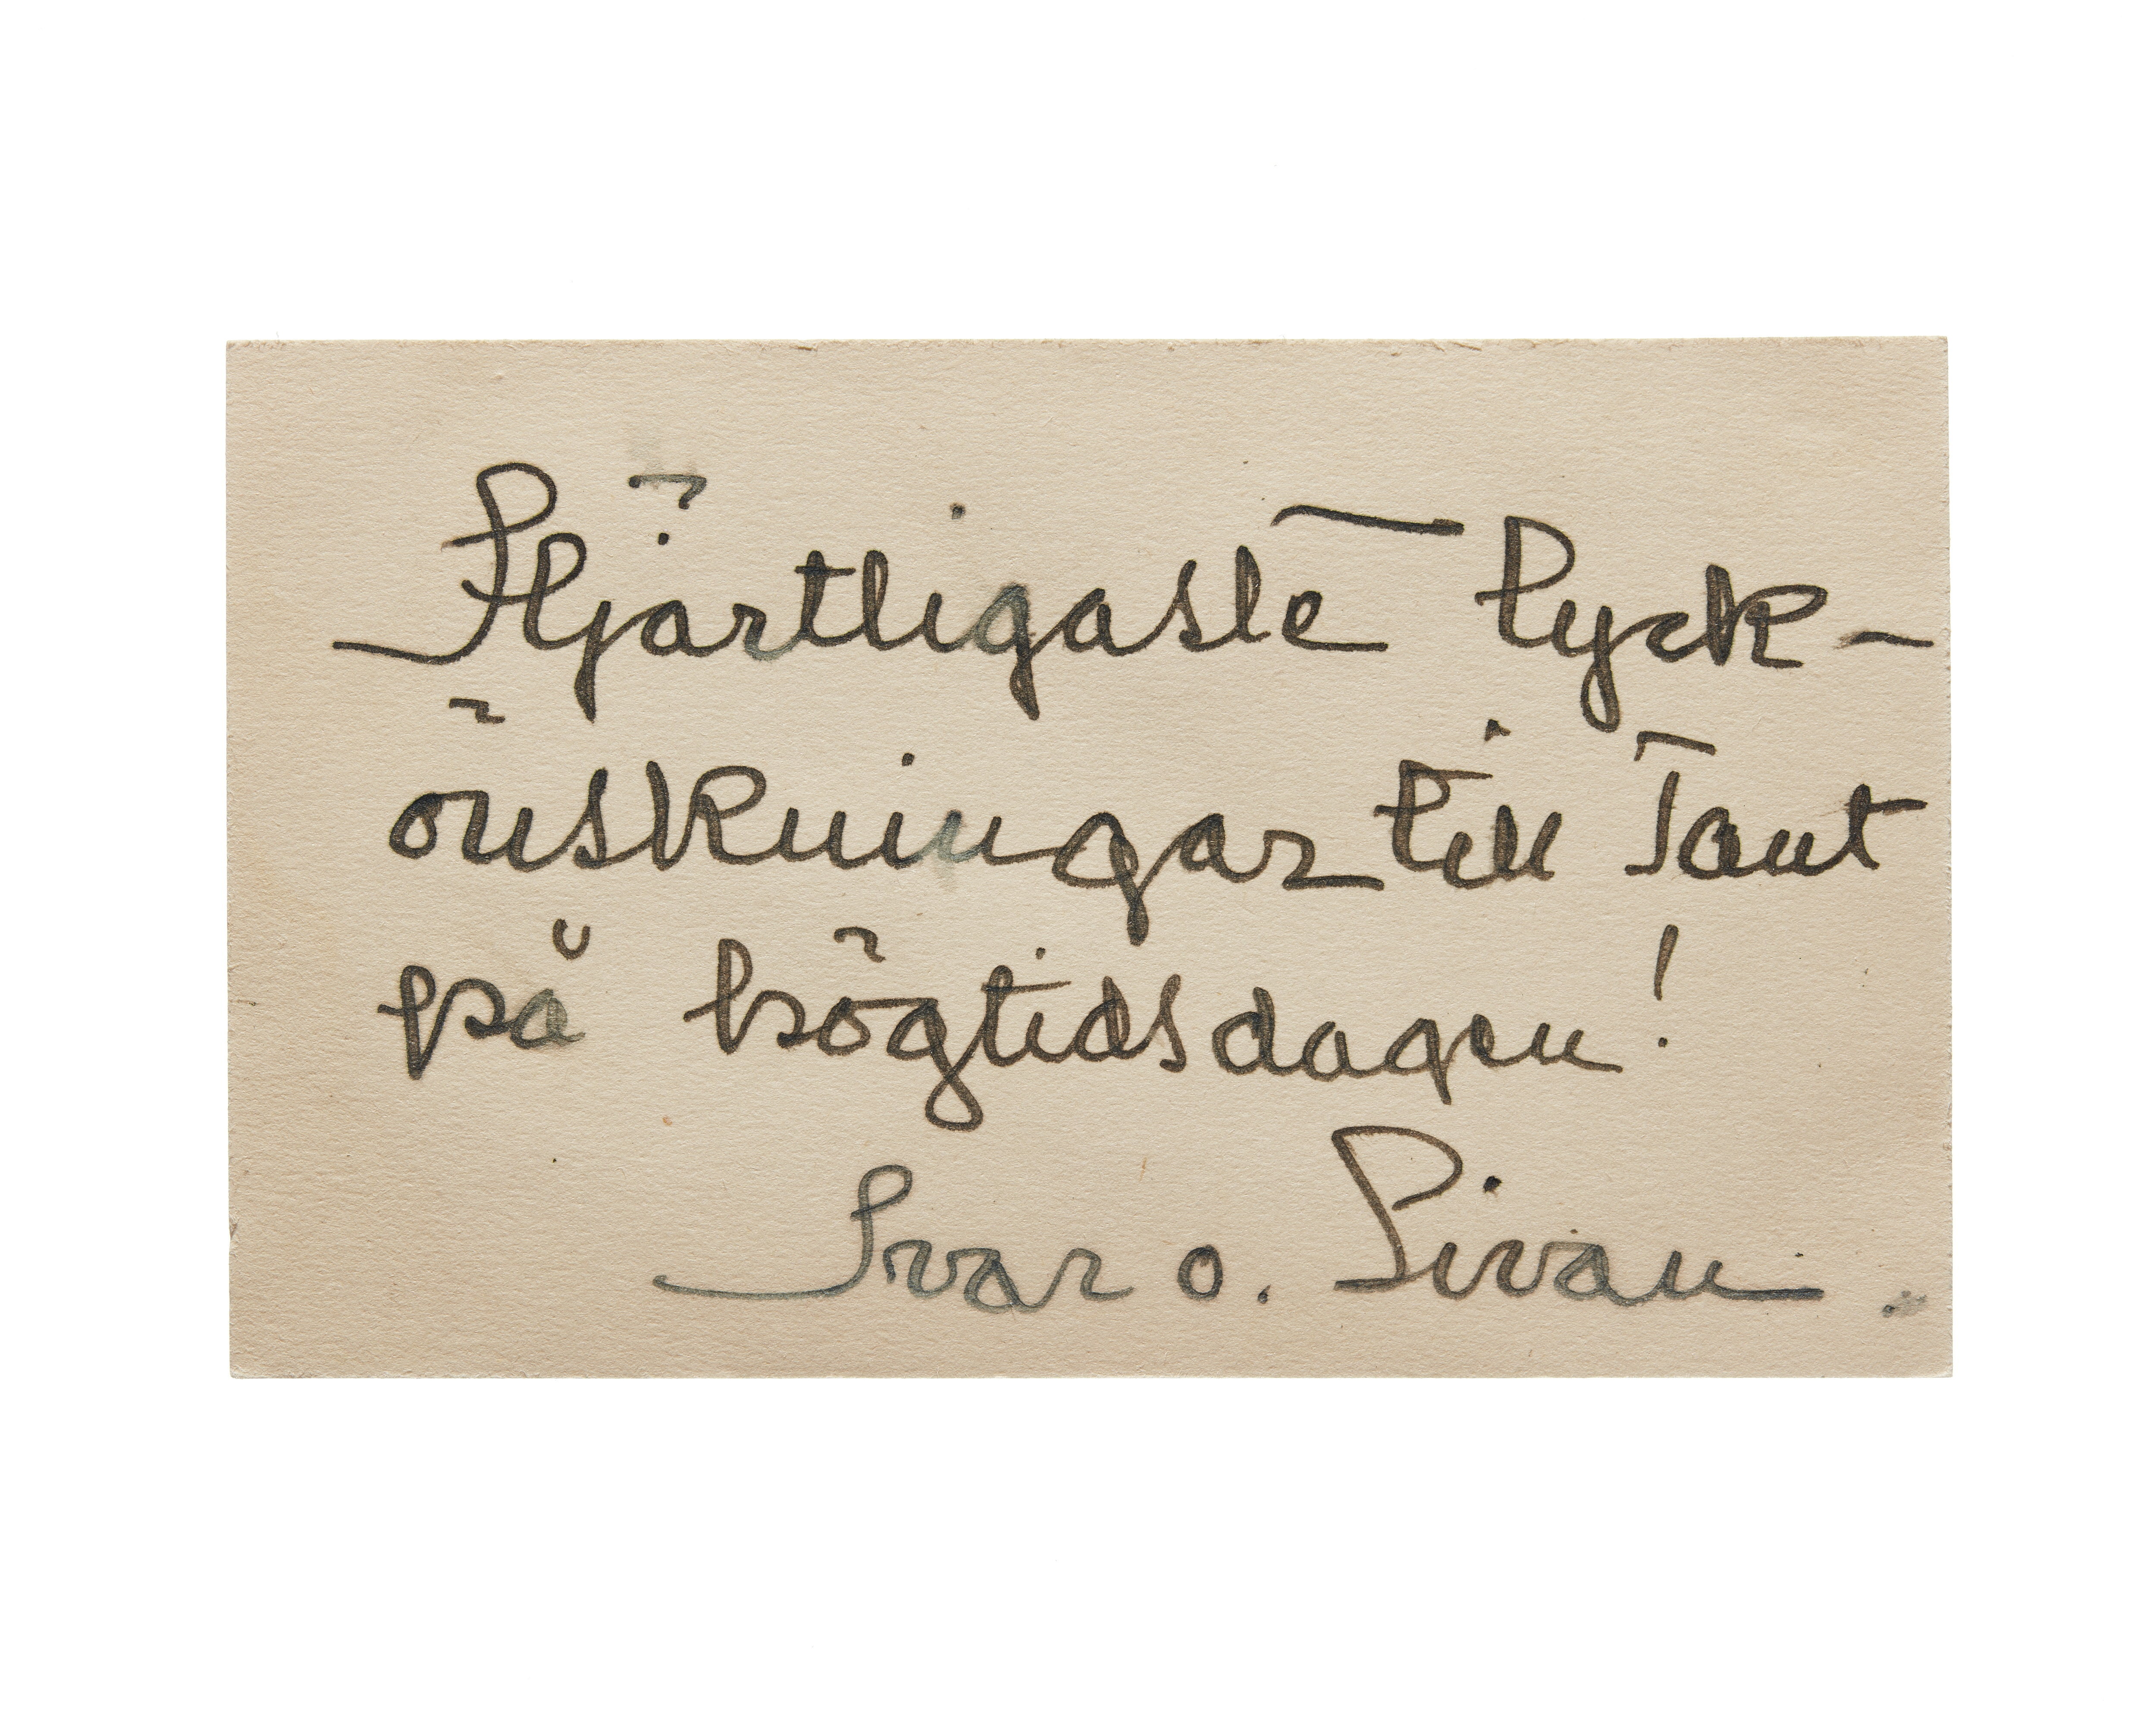 Hjärtligaste lyck-
önskningar till Tant
på högtidsdagen!
Ivar o. Sivan.